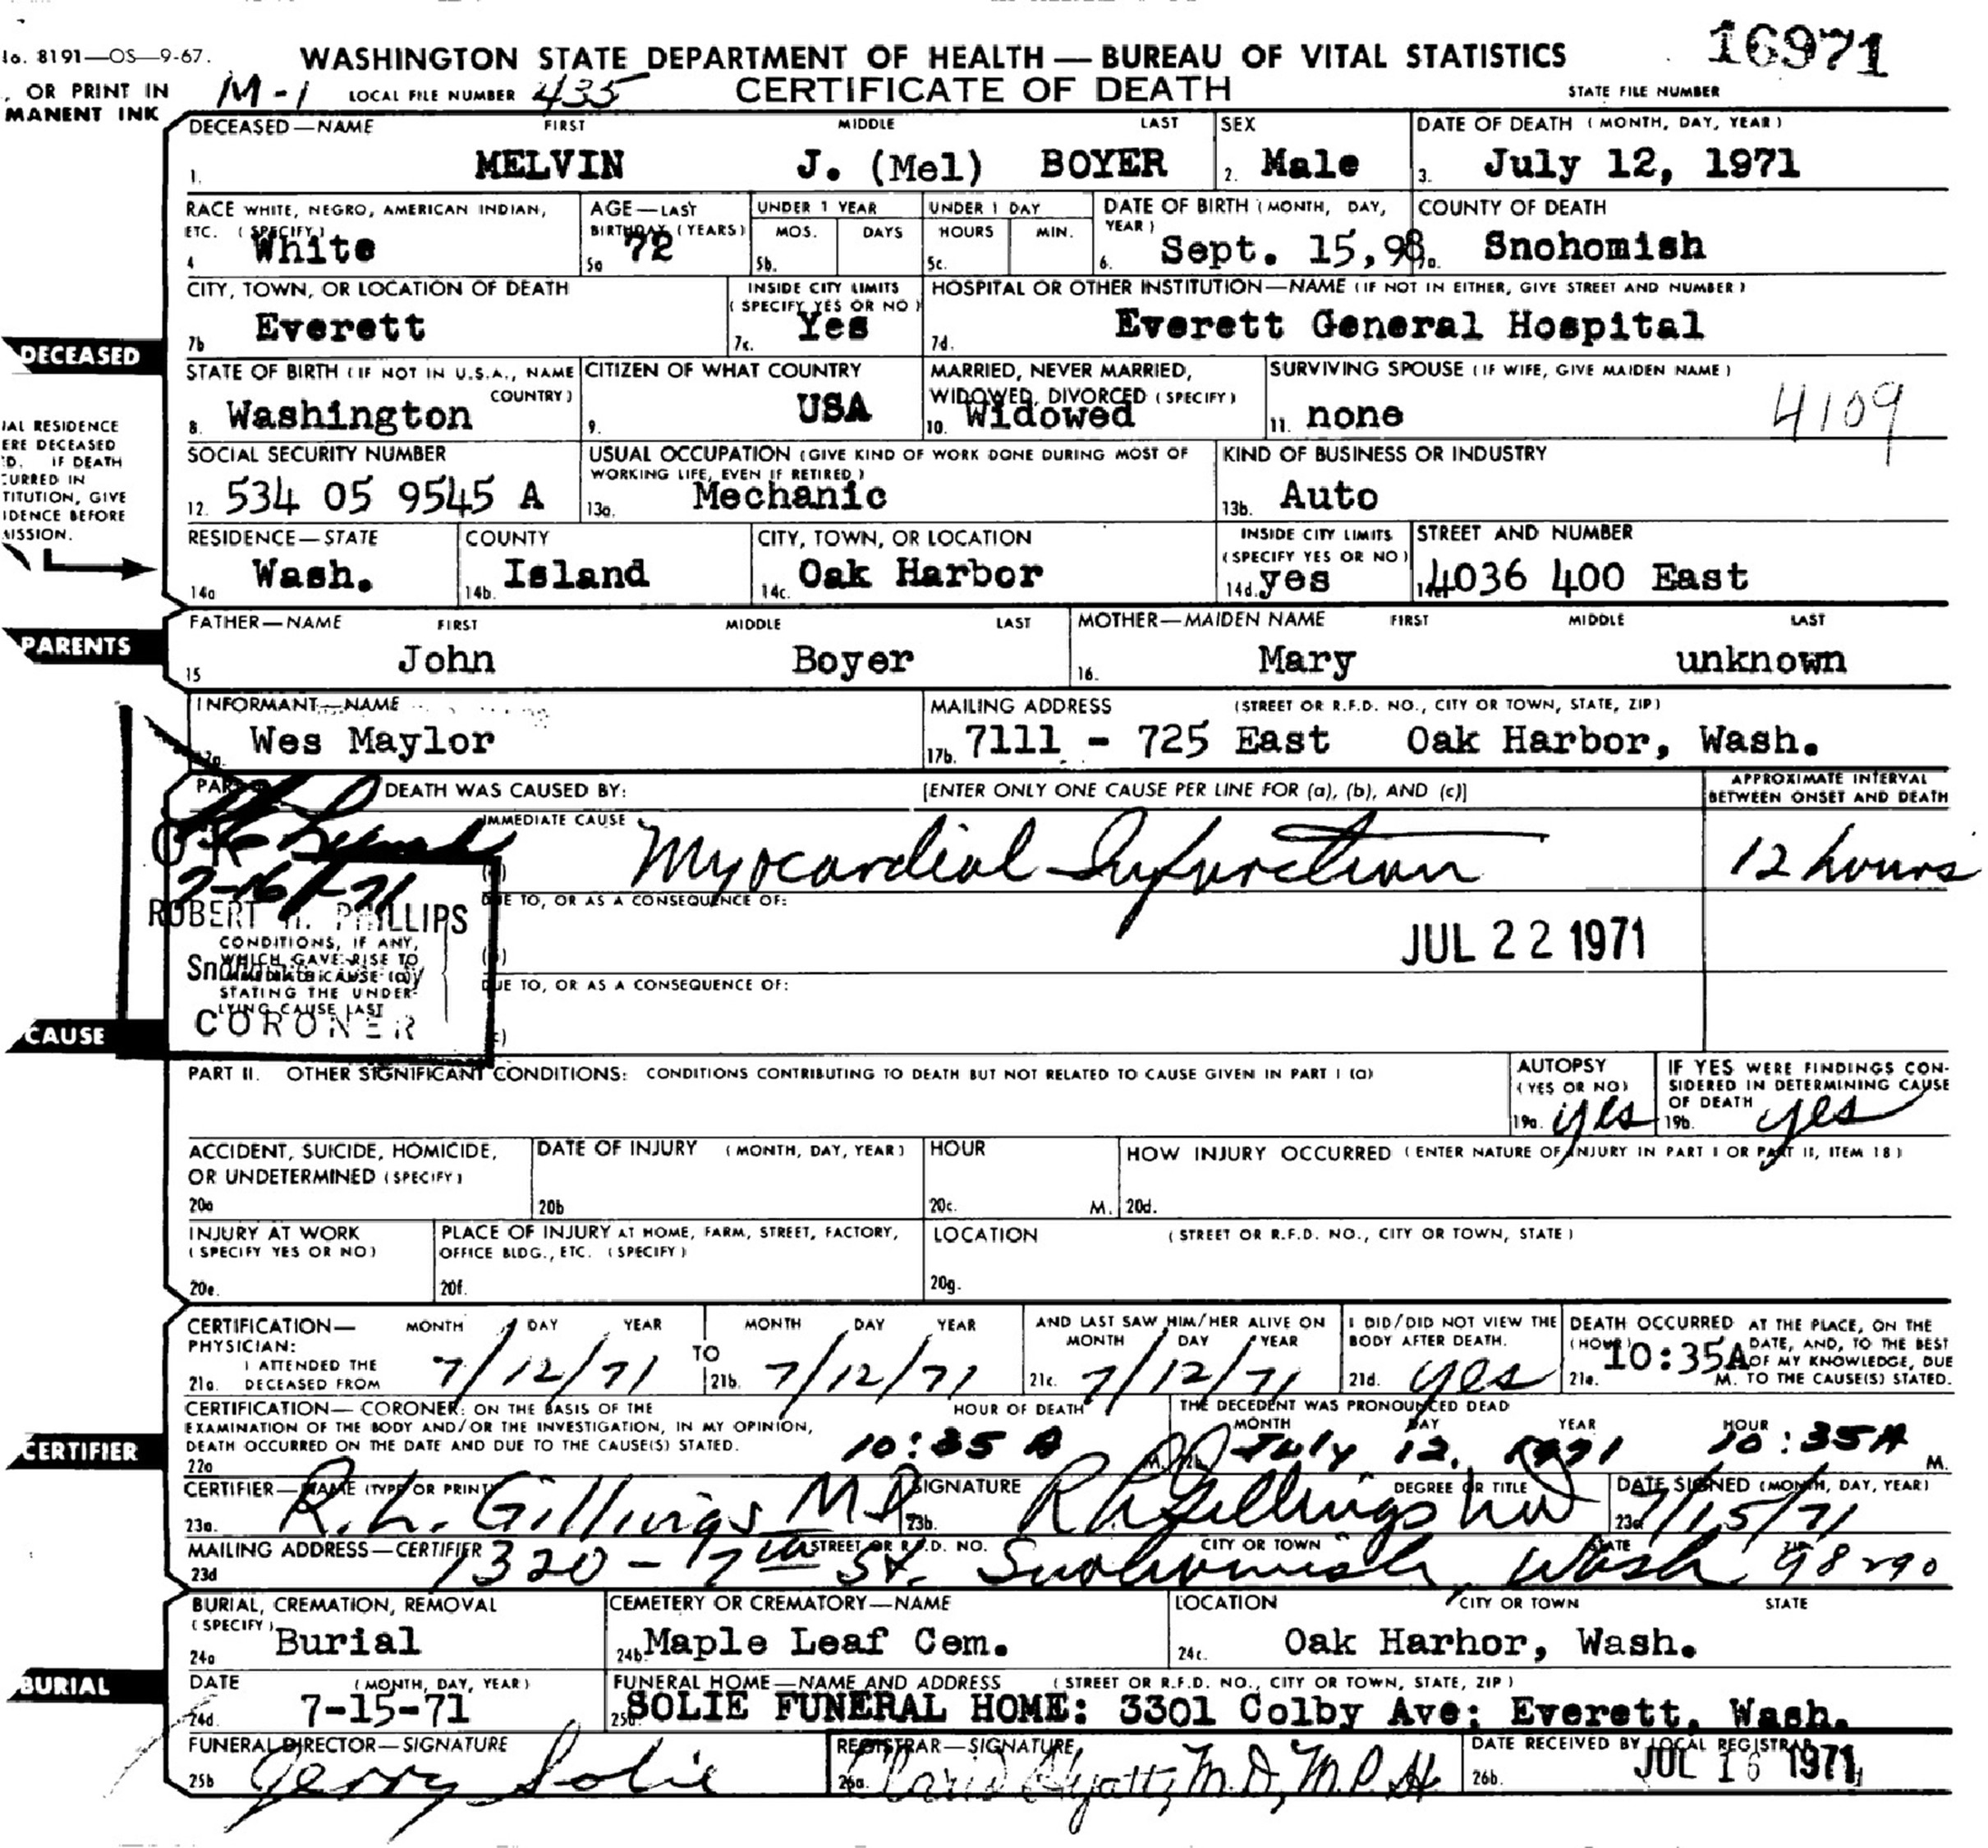 No. 8191—OS—9-67.
WASHINGTON STATE DEPARTMENT OF HEALTH — BUREAU OF VITAL STATISTICS
16971
OR PRINT IN
MANENT INK
M-1 LOCAL FILE NUMBER 435
CERTIFICATE OF DEATH
STATE FILE NUMBER
DECEASED—NAME FIRST MIDDLE LAST SEX DATE OF DEATH (MONTH, DAY, YEAR)
1. MELVIN J. (Mel) BOYER 2. Male 3. July 12, 1971
RACE WHITE, NEGRO, AMERICAN INDIAN, ETC. (SPECIFY) AGE—LAST BIRTHDAY (YEARS) UNDER 1 YEAR UNDER 1 DAY DATE OF BIRTH (MONTH, DAY, YEAR) COUNTY OF DEATH
MOS. DAYS HOURS MIN.
4 White 5a 72 5b. 5c. 6. Sept. 15,98 7a. Snohomish
CITY, TOWN, OR LOCATION OF DEATH INSIDE CITY LIMITS (SPECIFY YES OR NO) HOSPITAL OR OTHER INSTITUTION—NAME (IF NOT IN EITHER, GIVE STREET AND NUMBER)
7b Everett 7c. Yes 7d. Everett General Hospital
DECEASED
STATE OF BIRTH (IF NOT IN U.S.A., NAME COUNTRY) CITIZEN OF WHAT COUNTRY MARRIED, NEVER MARRIED, WIDOWED, DIVORCED (SPECIFY) SURVIVING SPOUSE (IF WIFE, GIVE MAIDEN NAME)
8. Washington 9. USA 10. Widowed 11. none 4109
IAL RESIDENCE
ERE DECEASED
D. IF DEATH
CURRED IN
TITUTION, GIVE
IDENCE BEFORE
MISSION.
SOCIAL SECURITY NUMBER USUAL OCCUPATION (GIVE KIND OF WORK DONE DURING MOST OF WORKING LIFE, EVEN IF RETIRED) KIND OF BUSINESS OR INDUSTRY
12. 534 05 9545 A 13a. Mechanic 13b. Auto
RESIDENCE—STATE COUNTY CITY, TOWN, OR LOCATION INSIDE CITY LIMITS (SPECIFY YES OR NO) STREET AND NUMBER
14a Wash. 14b. Island 14c. Oak Harbor 14d. yes 4036 400 East
PARENTS
FATHER—NAME FIRST MIDDLE LAST MOTHER—MAIDEN NAME FIRST MIDDLE LAST
15 John Boyer 16. Mary unknown
INFORMANT—NAME MAILING ADDRESS (STREET OR R.F.D. NO., CITY OR TOWN, STATE, ZIP)
Wes Maylor 17b. 7111 - 725 East Oak Harbor, Wash.
PART DEATH WAS CAUSED BY: [ENTER ONLY ONE CAUSE PER LINE FOR (a), (b), AND (c)] APPROXIMATE INTERVAL BETWEEN ONSET AND DEATH
IMMEDIATE CAUSE
Myocardial Infarction 12 hours
7-16-71
ROBERT PHILLIPS
DUE TO, OR AS A CONSEQUENCE OF:
CONDITIONS, IF ANY,
WHICH GAVE RISE TO
IMMEDIATE CAUSE (a)
STATING THE UNDER-
LYING CAUSE LAST
JUL 22 1971
DUE TO, OR AS A CONSEQUENCE OF:
CORONER
CAUSE
PART II. OTHER SIGNIFICANT CONDITIONS: CONDITIONS CONTRIBUTING TO DEATH BUT NOT RELATED TO CAUSE GIVEN IN PART I (a) AUTOPSY (YES OR NO) IF YES WERE FINDINGS CONSIDERED IN DETERMINING CAUSE OF DEATH
19a. yes 19b. yes
ACCIDENT, SUICIDE, HOMICIDE, OR UNDETERMINED (SPECIFY) DATE OF INJURY (MONTH, DAY, YEAR) HOUR HOW INJURY OCCURRED (ENTER NATURE OF INJURY IN PART I OR PART II, ITEM 18)
20a 20b 20c. M. 20d.
INJURY AT WORK (SPECIFY YES OR NO) PLACE OF INJURY AT HOME, FARM, STREET, FACTORY, OFFICE BLDG., ETC. (SPECIFY) LOCATION (STREET OR R.F.D. NO., CITY OR TOWN, STATE)
20e. 20f. 20g.
CERTIFICATION—PHYSICIAN: MONTH DAY YEAR MONTH DAY YEAR AND LAST SAW HIM/HER ALIVE ON MONTH DAY YEAR I DID/DID NOT VIEW THE BODY AFTER DEATH. DEATH OCCURRED (HOUR) AT THE PLACE, ON THE DATE, AND, TO THE BEST OF MY KNOWLEDGE, DUE TO THE CAUSE(S) STATED.
21a. I ATTENDED THE DECEASED FROM 7/12/71 TO 21b. 7/12/71 21c. 7/12/71 21d. yes 21e. 10:35A M.
CERTIFICATION—CORONER: ON THE BASIS OF THE EXAMINATION OF THE BODY AND/OR THE INVESTIGATION, IN MY OPINION, DEATH OCCURRED ON THE DATE AND DUE TO THE CAUSE(S) STATED. HOUR OF DEATH THE DECEDENT WAS PRONOUNCED DEAD MONTH DAY YEAR HOUR
22a 10:35 A M. July 12, 1971 10:35A M.
CERTIFIER
CERTIFIER—NAME (TYPE OR PRINT) SIGNATURE DEGREE OR TITLE DATE SIGNED (MONTH, DAY, YEAR)
23a. R. L. Gillings MD 23b. R L Gillings MD 23c 7/15/71
MAILING ADDRESS—CERTIFIER STREET OR R.F.D. NO. CITY OR TOWN STATE ZIP
23d 1320 - 7th St. Snohomish, Wash 98290
BURIAL, CREMATION, REMOVAL (SPECIFY) CEMETERY OR CREMATORY—NAME LOCATION CITY OR TOWN STATE
24a Burial 24b Maple Leaf Cem. 24c. Oak Harhor, Wash.
BURIAL
DATE (MONTH, DAY, YEAR) FUNERAL HOME—NAME AND ADDRESS (STREET OR R.F.D. NO., CITY OR TOWN, STATE, ZIP)
24d. 7-15-71 25a SOLIE FUNERAL HOME: 3301 Colby Ave; Everett, Wash.
FUNERAL DIRECTOR—SIGNATURE REGISTRAR—SIGNATURE DATE RECEIVED BY LOCAL REGISTRAR
25b Jerry Solie 26a. Claris Hyatt, M.D., M.P.H. 26b. JUL 16 1971